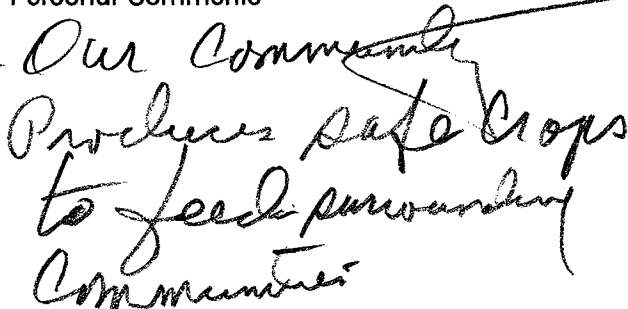 Personal Comments
Our Community
Produces safe Crops
to feed surrounding
Communities